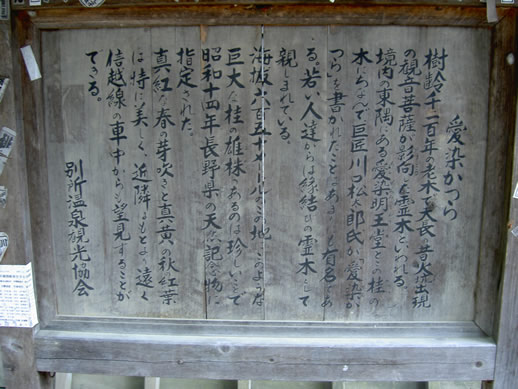 愛染かつら
樹齢千二百年の老木で天長の昔火坑出現
の観音菩薩が影向した霊木といわれる。
境内の東隅にある愛染明王堂とこの桂の
木にちなんで巨匠川口松太郎氏が「愛染か
つら」を書かれたことはあまりにも有名であ
る。若い人達からは縁結びの霊木として
親しまれている。
海抜六百五十メートルのこの地にこのような
巨大な桂の雄株のあるのは珍しいことで
昭和十四年長野県の天然記念物に
指定された。
真紅な春の芽吹きと真黄の秋紅葉
は特に美しく近隣はもとより遠く
信越線の車中からも望見することが
できる。
別所温泉観光協会